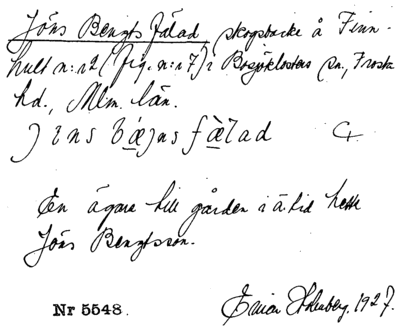 Jöns Bengts fälad skogsbacke å Finn-
hult n:r 2 (fig. n:r 7) i Bosjöklosters sn, Frosta
hd., Mlm. län.
jɪns bæŋns fælad
En ägare till gården i ä. tid hette
Jöns Bengtsson.
Nr 5548. Einar Holmberg. 1927.